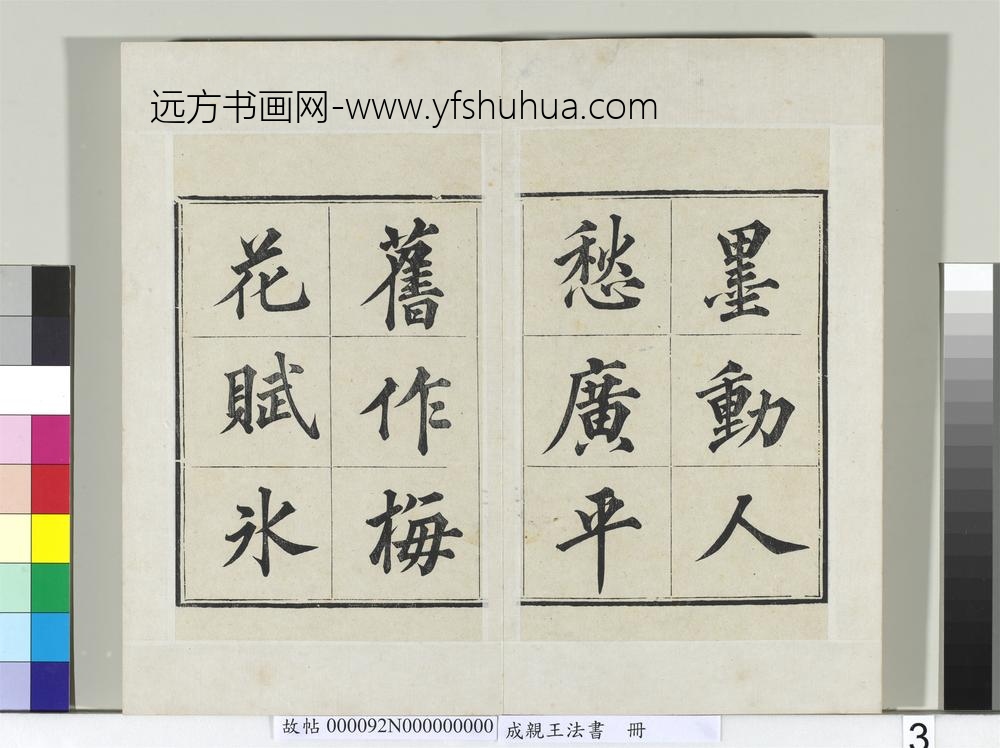 远方书画网-www.yfshuhua.com
墨動人
愁廣平
舊作梅
花賦氷
故帖 000092N000000000 成親王法書 冊
3